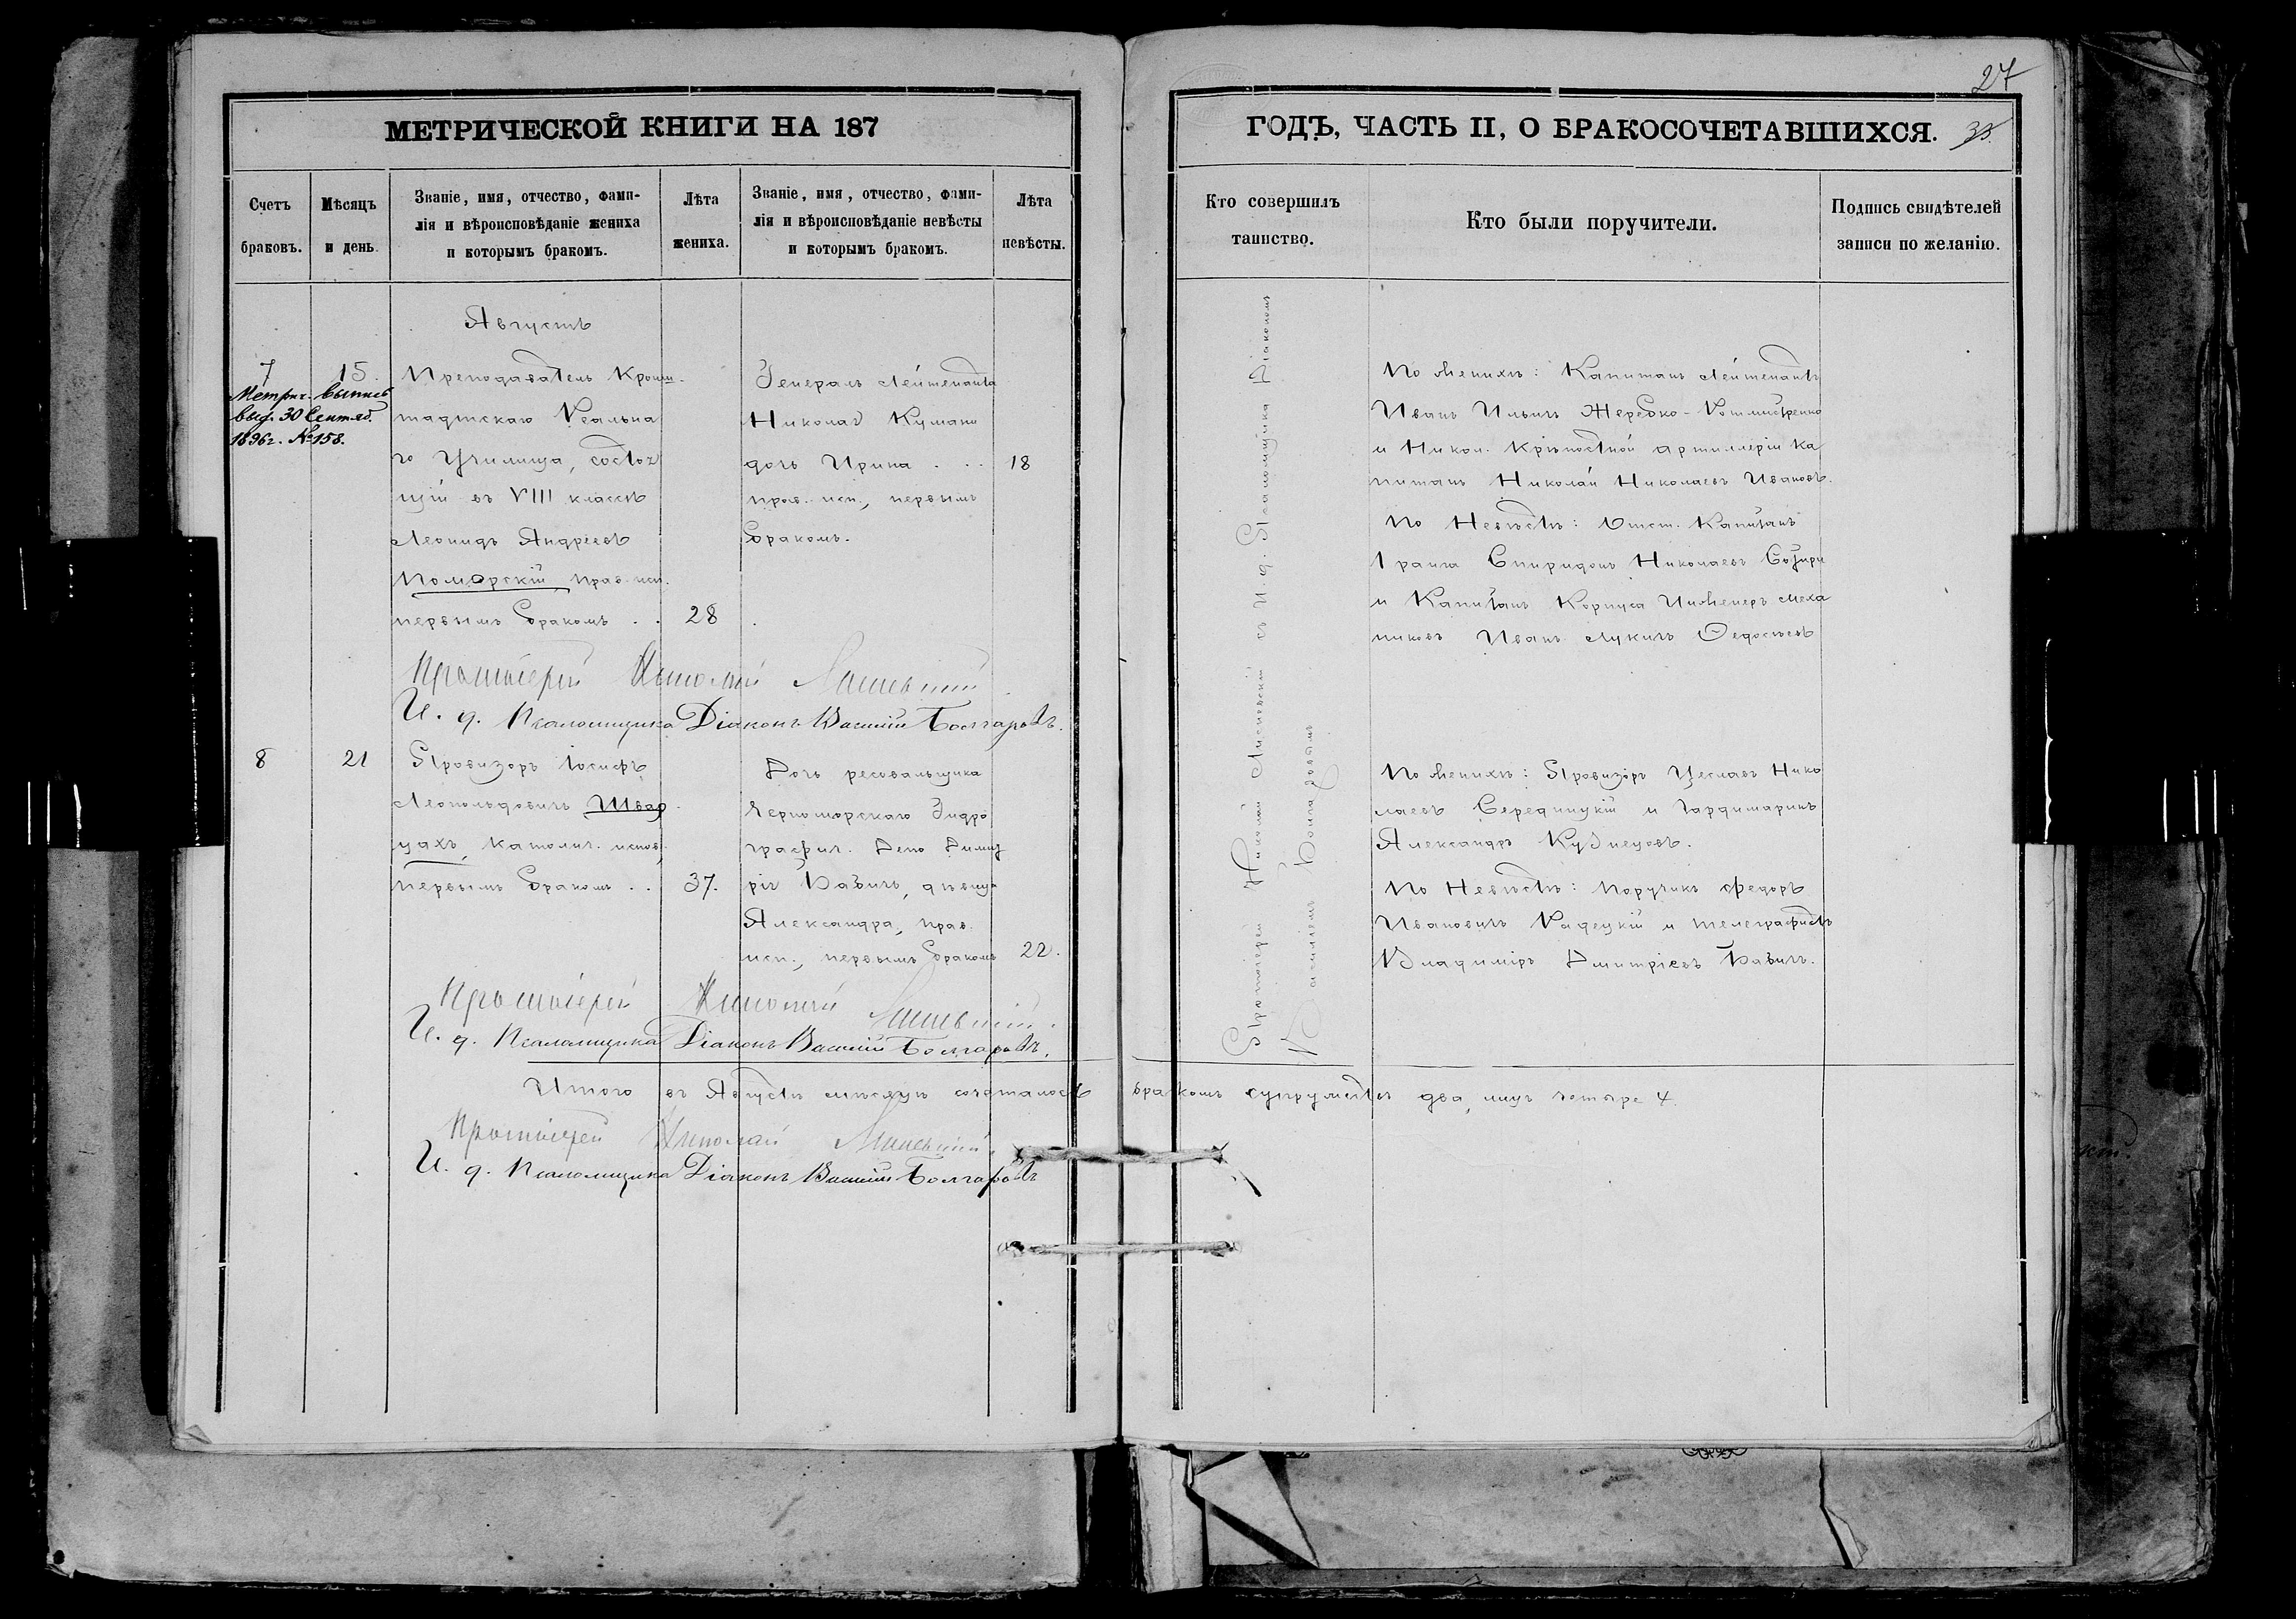 27
МЕТРИЧЕСКОЙ КНИГИ НА 187
ГОДЪ, ЧАСТЬ II, О БРАКОСОЧЕТАВШИХСЯ.
Счетъ браковъ.
Мѣсяцъ и день.
Званіе, имя, отчество, фами-
лія и вѣроисповѣданіе жениха
и которымъ бракомъ.
Лѣта жениха.
Званіе, имя, отчество, фами-
лія и вѣроисповѣданіе невѣсты
и которымъ бракомъ.
Лѣта невѣсты.
Кто совершилъ
таинство.
Кто были поручители.
Подпись свидѣтелей
записи по желанію.
Августъ
7
15.
Метрич. выпись
выд. 30 Сентяб.
1896г. №158.
Преподаватель Кронш-
тадтскаго Реальна
го Училища, состоя
щій въ VIII классѣ
Леонидъ Андреевъ
Поморскій, прав. исп.
первымъ бракомъ . .
28
Генералъ Лейтенанта
Николая Кумани
дочь Ирина . . .
18
прав. исп., первымъ
бракомъ.
По Женихѣ: Капитанъ Лейтенантъ
Иванъ Ильичъ Жеребко-Ротмистренко
и Никол. Крѣпостной артиллеріи Ка
питанъ Николай Николаевъ Ивановъ.
По Невѣстѣ: Отст. Капитанъ
1 ранга Спиридонъ Николаевъ
и Капитанъ Корпуса Инженеръ Меха
никовъ Иванъ Лукичъ Ѳедосѣевъ
Протоіерей Николай
И. д. Псаломщика Діаконъ Василій Болгаровъ.
8
21
Провизоръ Іосифъ
Леопольдовичъ Швар
цахъ, католич. испов.
первымъ бракомъ . .
37.
Дочь рисовальщика
Черноморскаго Гидро
графич. Депо Димит
рія Бавичъ, дѣвица
Александра, прав.
исп., первымъ бракомъ
22.
По Женихѣ: Провизоръ Цеславъ Нико
лаевъ Середницкій и Гардимаринъ
Александръ Кузнецовъ.
По Невѣстѣ: Поручикъ Федоръ
Ивановичъ Радецкій и телеграфистъ
Владиміръ Дмитріевъ Бавичъ.
Протоіерей Николай
И. д. Псаломщика Діаконъ Василій Болгаровъ.
Протоіерей Николай съ И. д. Псаломщика Діакономъ
Василіемъ Болгаровымъ
Итого въ Августѣ мѣсяцѣ сочеталось бракомъ супружествъ два, лицъ четыре 4.
Протоіерей Николай
И. д. Псаломщика Діаконъ Василій Болгаровъ